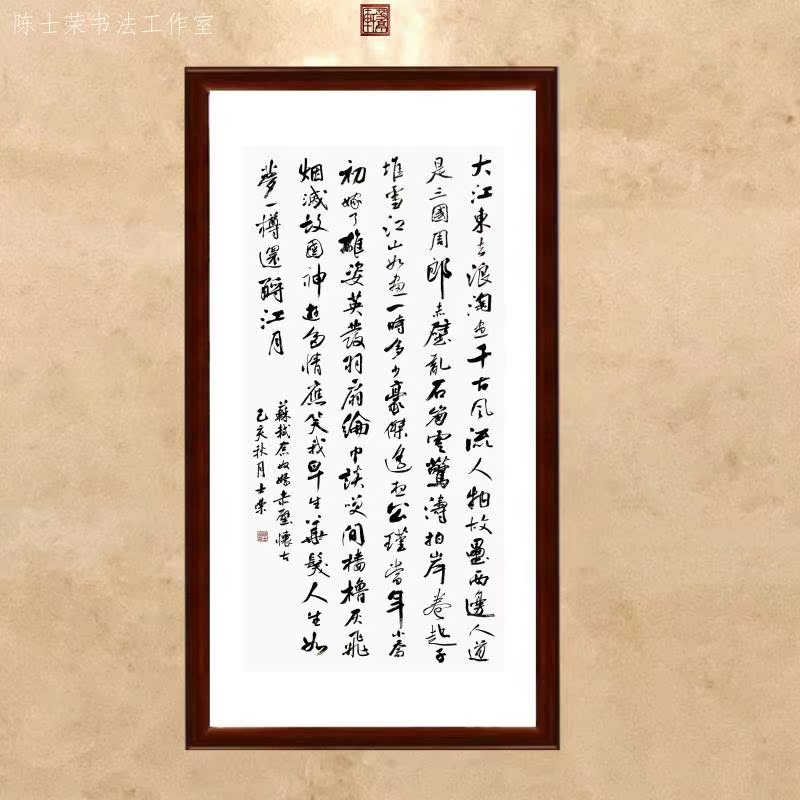 陈士荣书法工作室
大江東去浪淘盡千古风流人物故壘西邊人道
是三國周郎赤壁亂石崩雲驚濤拍岸卷起千
堆雪江山如畫一時多少豪傑遙想公瑾當年小喬
初嫁了雄姿英發羽扇綸巾談笑間檣櫓灰飛
烟滅故國神遊多情應笑我早生華髮人生如
夢一樽還酹江月
蘇軾念奴嬌赤壁懷古
己亥秋月士榮